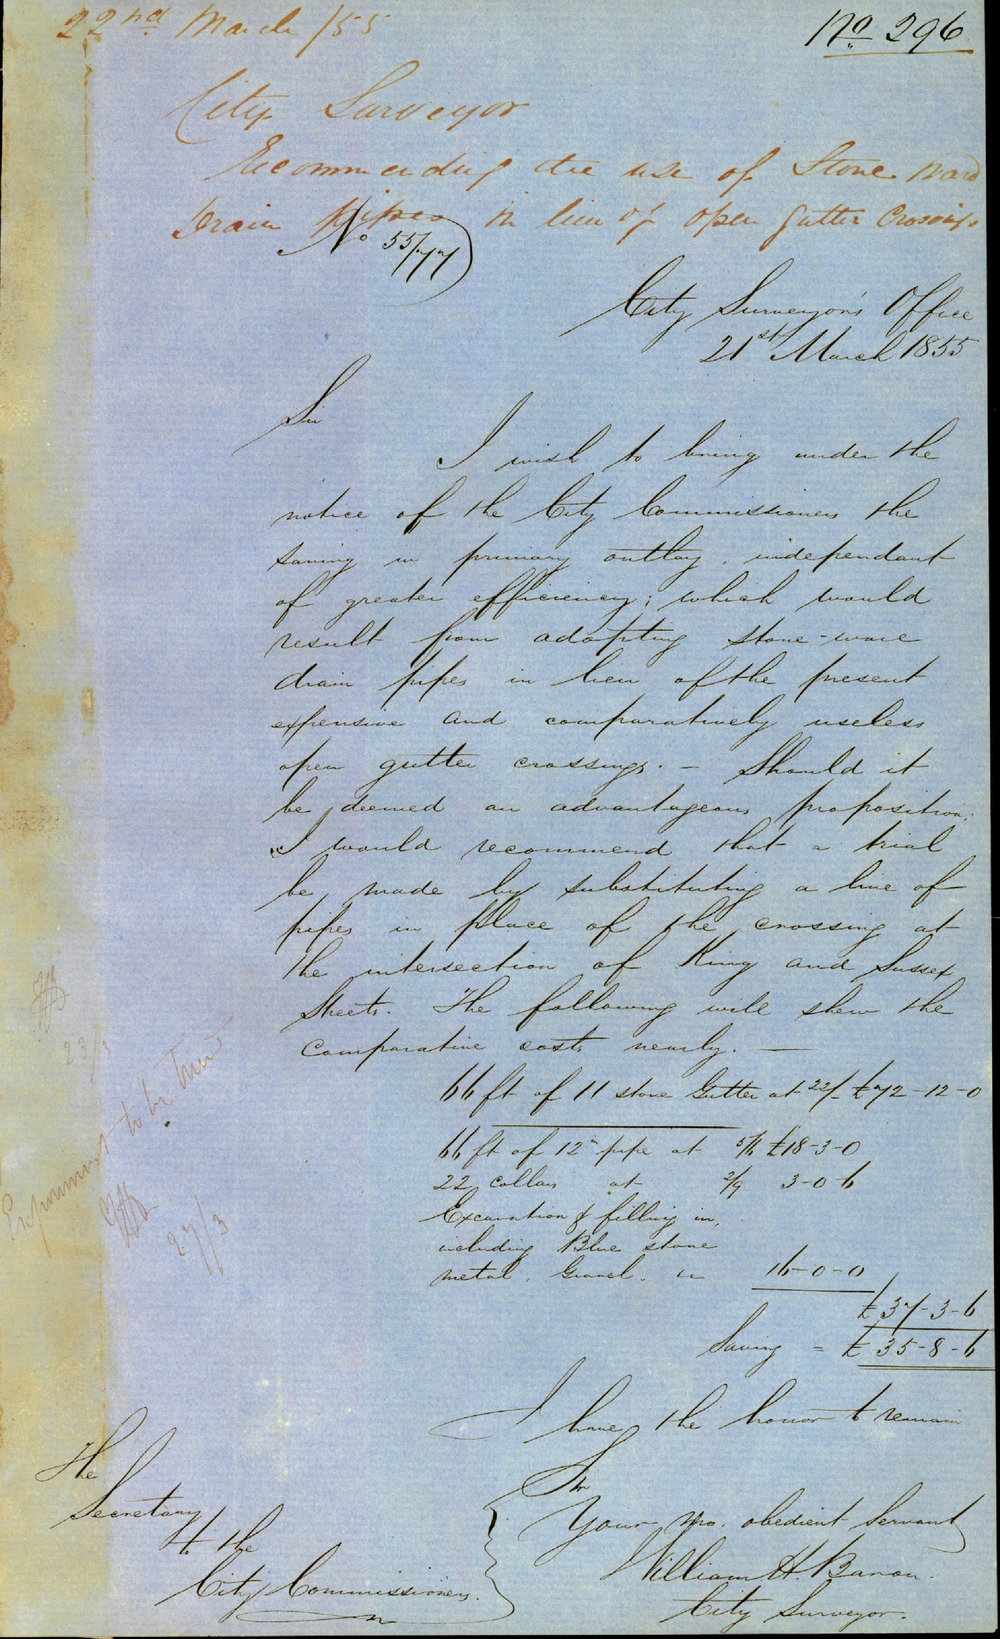 22nd. March /55
No. 296
City Surveyor
Recommending the use of Stone Ward
Drain Pipes in lieu of open Gutter Crossings
No 55/77
City Surveyor's Office
21st March 1855
Sir
I wish to bring under the
notice of the City Commissioners the
saving in primary outlay, independant
of greater efficiency; which would
result from adopting stone-ware
drain pipes in lieu of the present
expensive and comparatively useless
open gutter crossings. – Should it
be deemed an advantageous proposition;
I would recommend that a trial
be made by substituting a line of
pipes in place of the crossing at
the intersection of King and Sussex
Streets. The following will shew the
comparative costs nearly. —
66 ft of 11 stone Gutter at 22/- £72-12-0
66 ft of 12" pipe at 5/6 £18-3-0
22 collars at 2/9 3-0-6
Excavation & filling in,
including Blue stone
metal, Gravel, &c 16-0-0
£37-3-6
Saving = £35-8-6
I have the honor to remain
Sir
Your mo. obedient Servant
William H. Baron.
City Surveyor.
The
Secretary
to the
City Commissioners.
23/3
Experiment to be tried
27/3